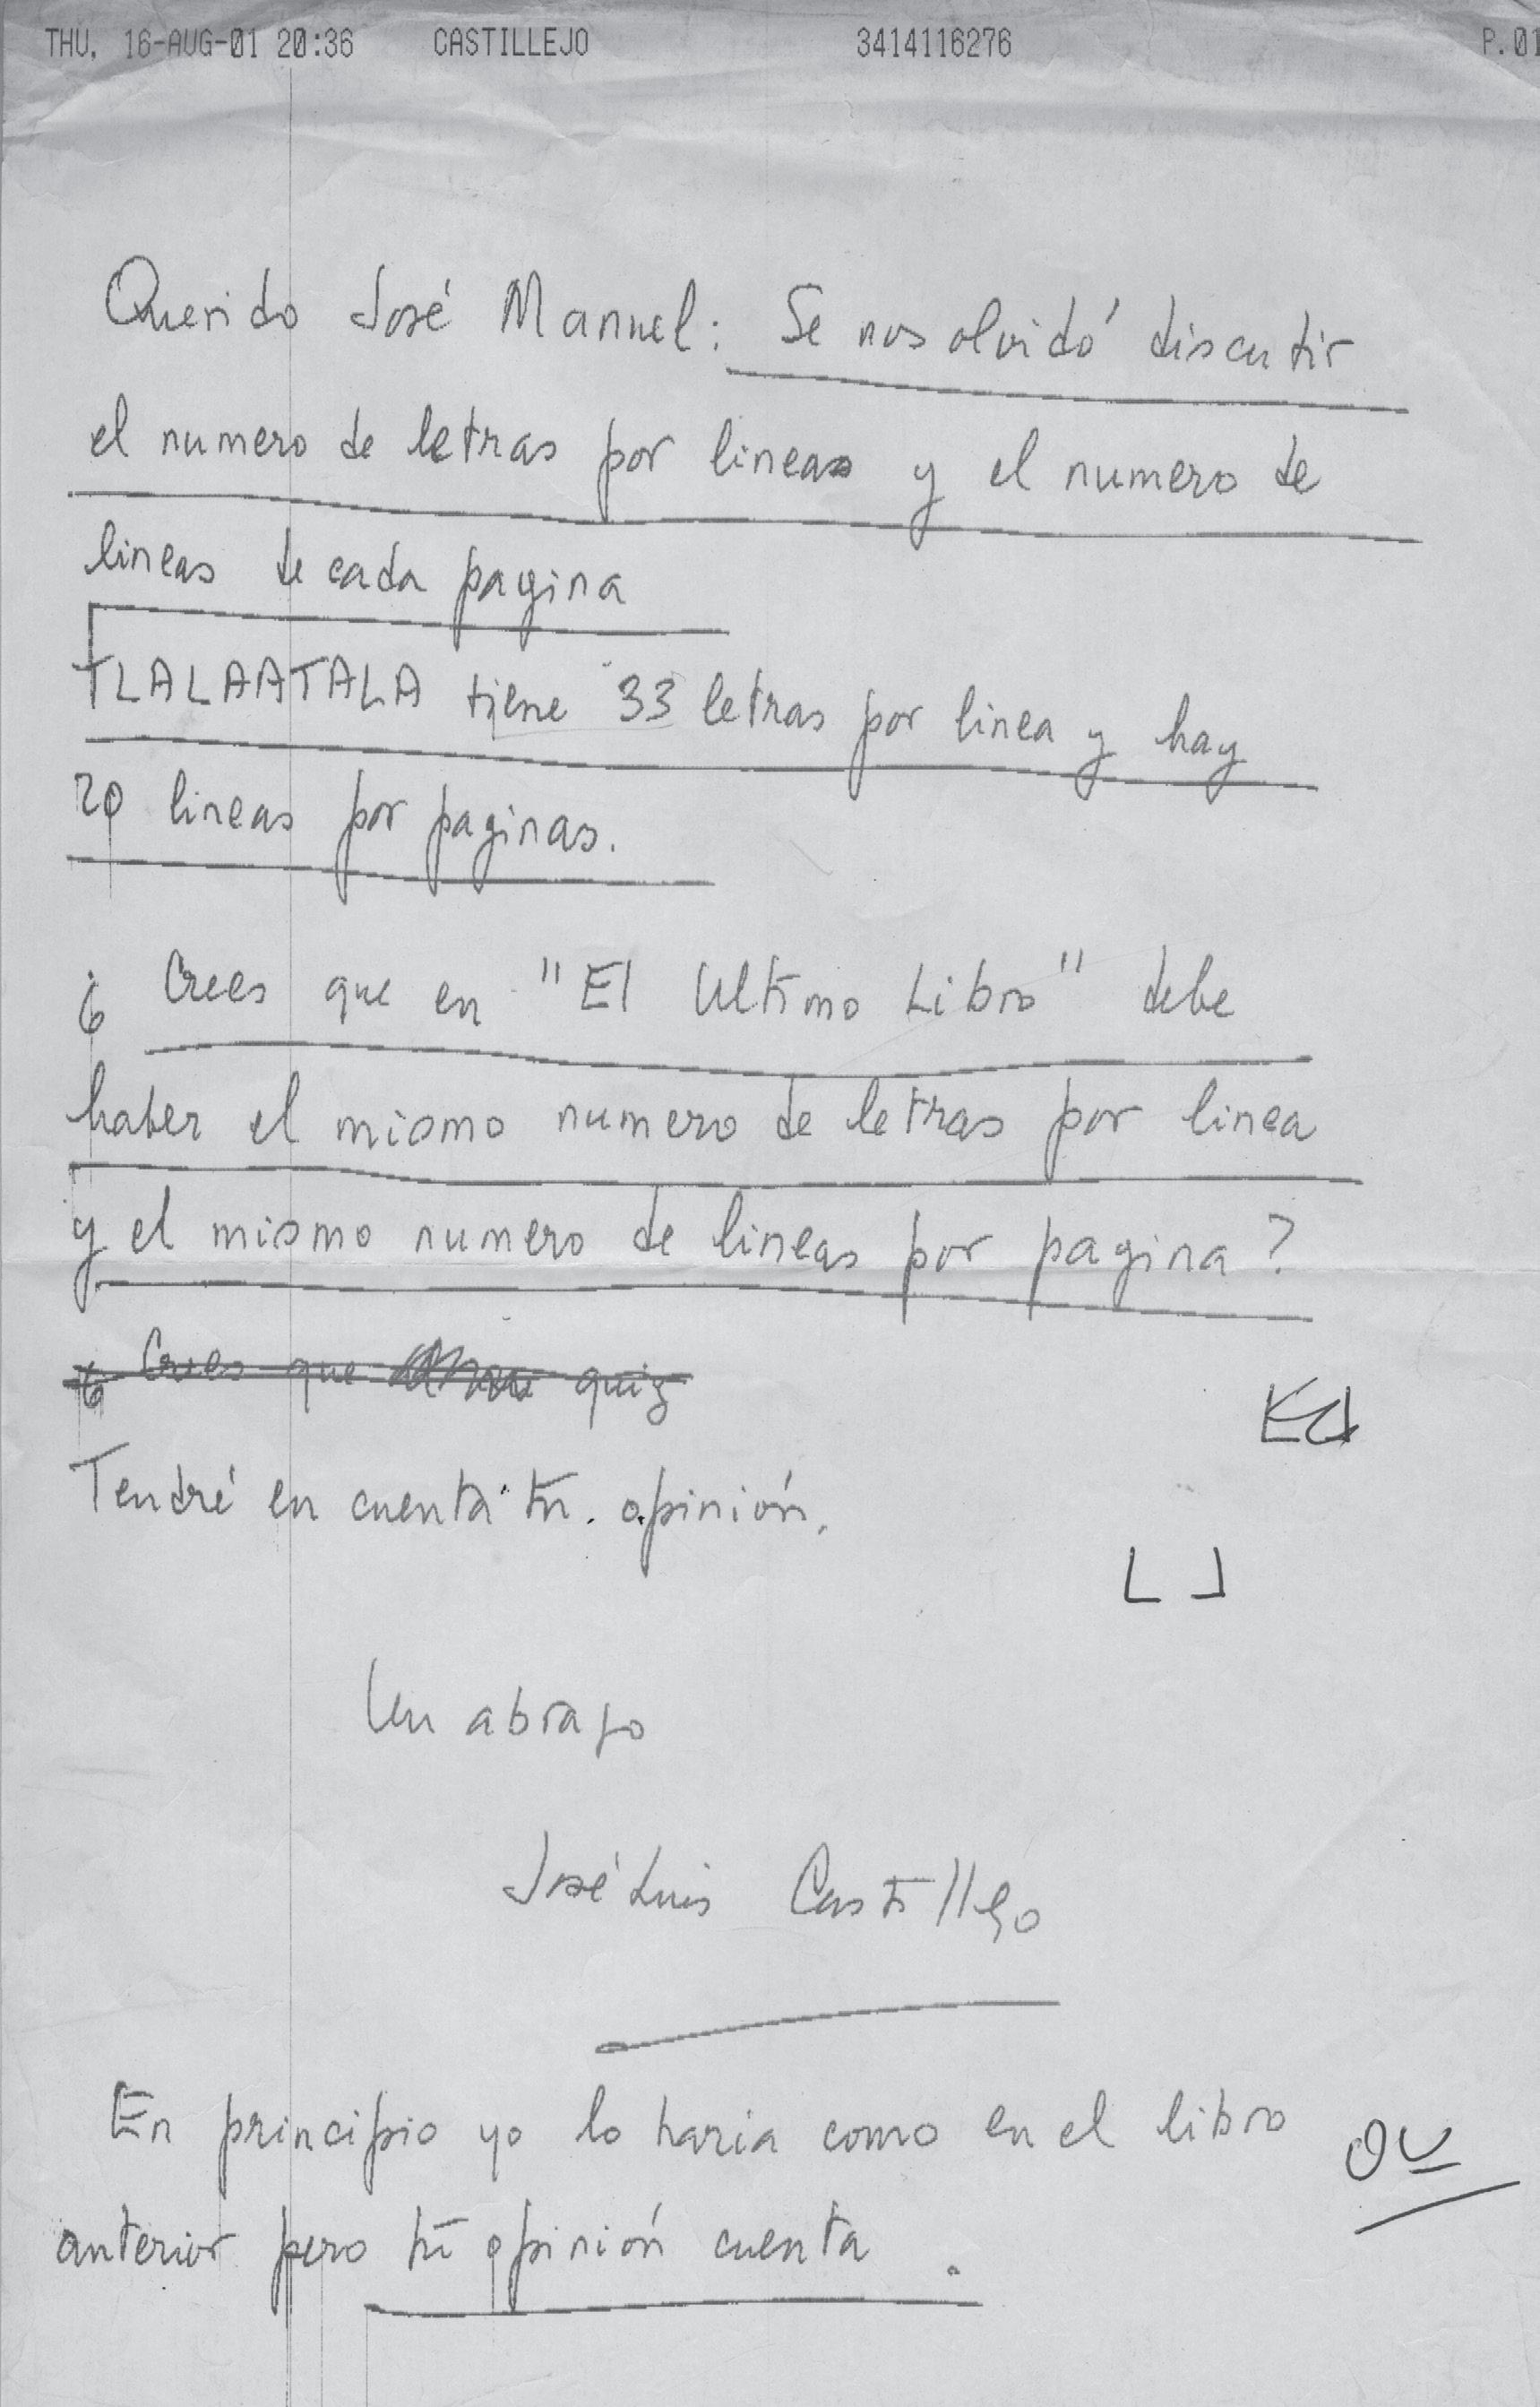 THU, 16-AUG-01 20:36 CASTILLEJO 3414116276 P.01
Querido José Manuel: Se nos olvidó discutir
el numero de letras por lineas y el numero de
lineas de cada pagina
TLALAATALA tiene 33 letras por linea y hay
20 lineas por paginas.
¿Crees que en "El Ultimo Libro" debe
haber el mismo numero de letras por linea
y el mismo numero de lineas por pagina?
¿Crees que quiz
Tendré en cuenta tu opinión.
Un abrazo
José Luis Castillejo
En principio yo lo haria como en el libro
anterior pero tu opinión cuenta.